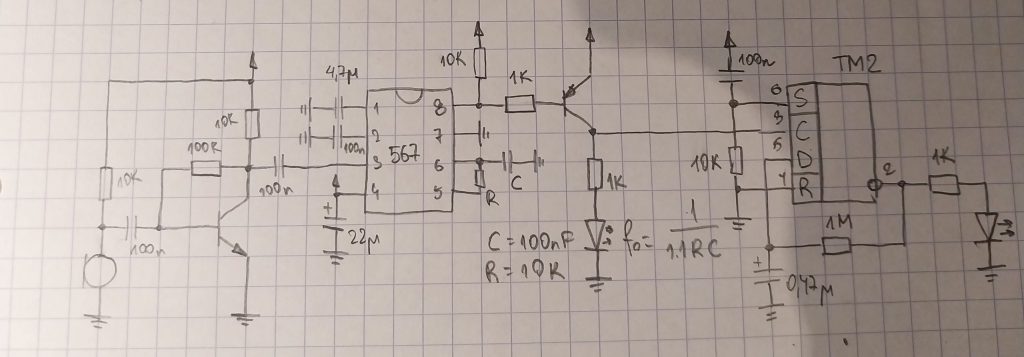 10K
10K
100K
100n
100n
4,7μ
100n
1
2
3
4
567
8
7
6
5
+
22μ
10K
1K
C
R
1K
C = 100nF
R = 10K
f₀ = 1/1.1RC
100n
10K
TM2
6 S
3 C
5 D
4 R
2
1K
1M
+
0,47μ